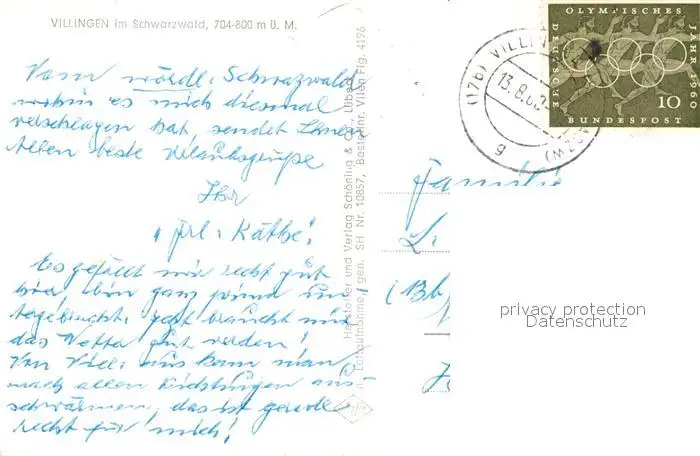 VILLINGEN im Schwarzwald, 704-800 m ü. M.
Vom nördl. Schwarzwald
wohin es mich diesmal
verschlagen hat, sendet Ihnen
Allen beste Urlaubsgrüße
Ihr
"Frl. Käthe"!
Es gefällt mir recht gut
hier, bin ganz prima un-
tergebracht. Jetzt braucht nur
das Wetter gut werden!
Von Vill. aus kann man
nach allen Richtungen aus-
schwärmen, das ist gerade
recht für mich!
Hersteller und Verlag Schöning & Co., Lübeck
Luftaufnahme, gen. SH Nr. 10857, Bestell-Nr. Villen Flg. 4196
(17b) VILLIN
13.8.60
g
OLYMPISCHES
JAHR 1960
DEUTSCHE
BUNDESPOST
10
Familie
L.
privacy protection
Datenschutz